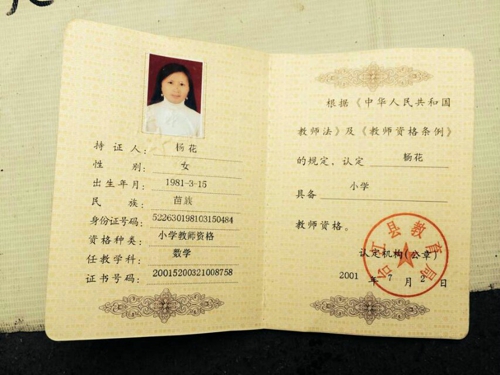 持证人： 杨花
性别： 女
出生年月： 1981-3-15
民族： 苗族
身份证号码： 522630198103150484
资格种类： 小学教师资格
任教学科： 数学
证书号码： 20015200321008758
根据《中华人民共和国
教师法》及《教师资格条例》
的规定，认定 杨花
具备 小学
教师资格。
台江县教育局
认定机构(公章)
2001 年 7 月 2 日